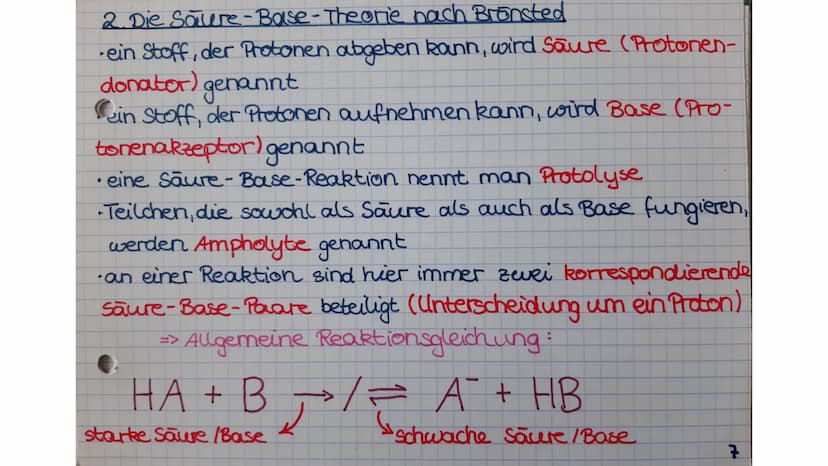 2. Die Säure-Base-Theorie nach Brönsted
·ein Stoff, der Protonen abgeben kann, wird Säure (Protonen-
donator) genannt
·ein Stoff, der Protonen aufnehmen kann, wird Base (Pro-
tonenakzeptor) genannt
·eine Säure-Base-Reaktion nennt man Protolyse
·Teilchen, die sowohl als Säure als auch als Base fungieren,
werden Ampholyte genannt
·an einer Reaktion sind hier immer zwei korrespondierende
Säure-Base-Paare beteiligt (Unterscheidung um ein Proton)
=> Allgemeine Reaktionsgleichung:
HA + B → / ⇌ A⁻ + HB
starke Säure/Base schwache Säure/Base
7